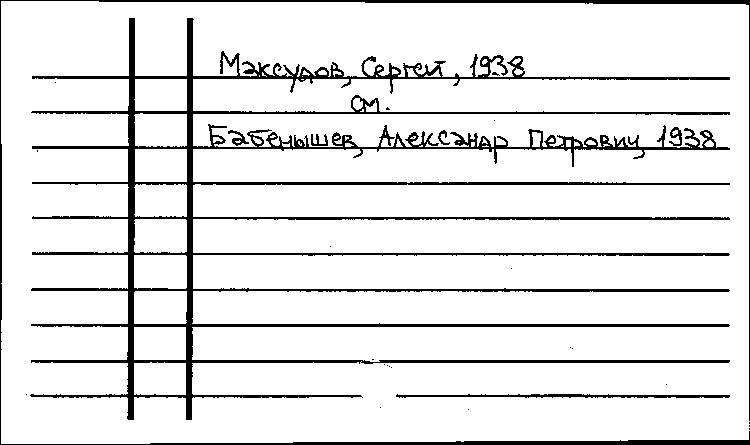 Максудов, Сергей, 1938
см.
Бабенышев, Александр Петрович, 1938